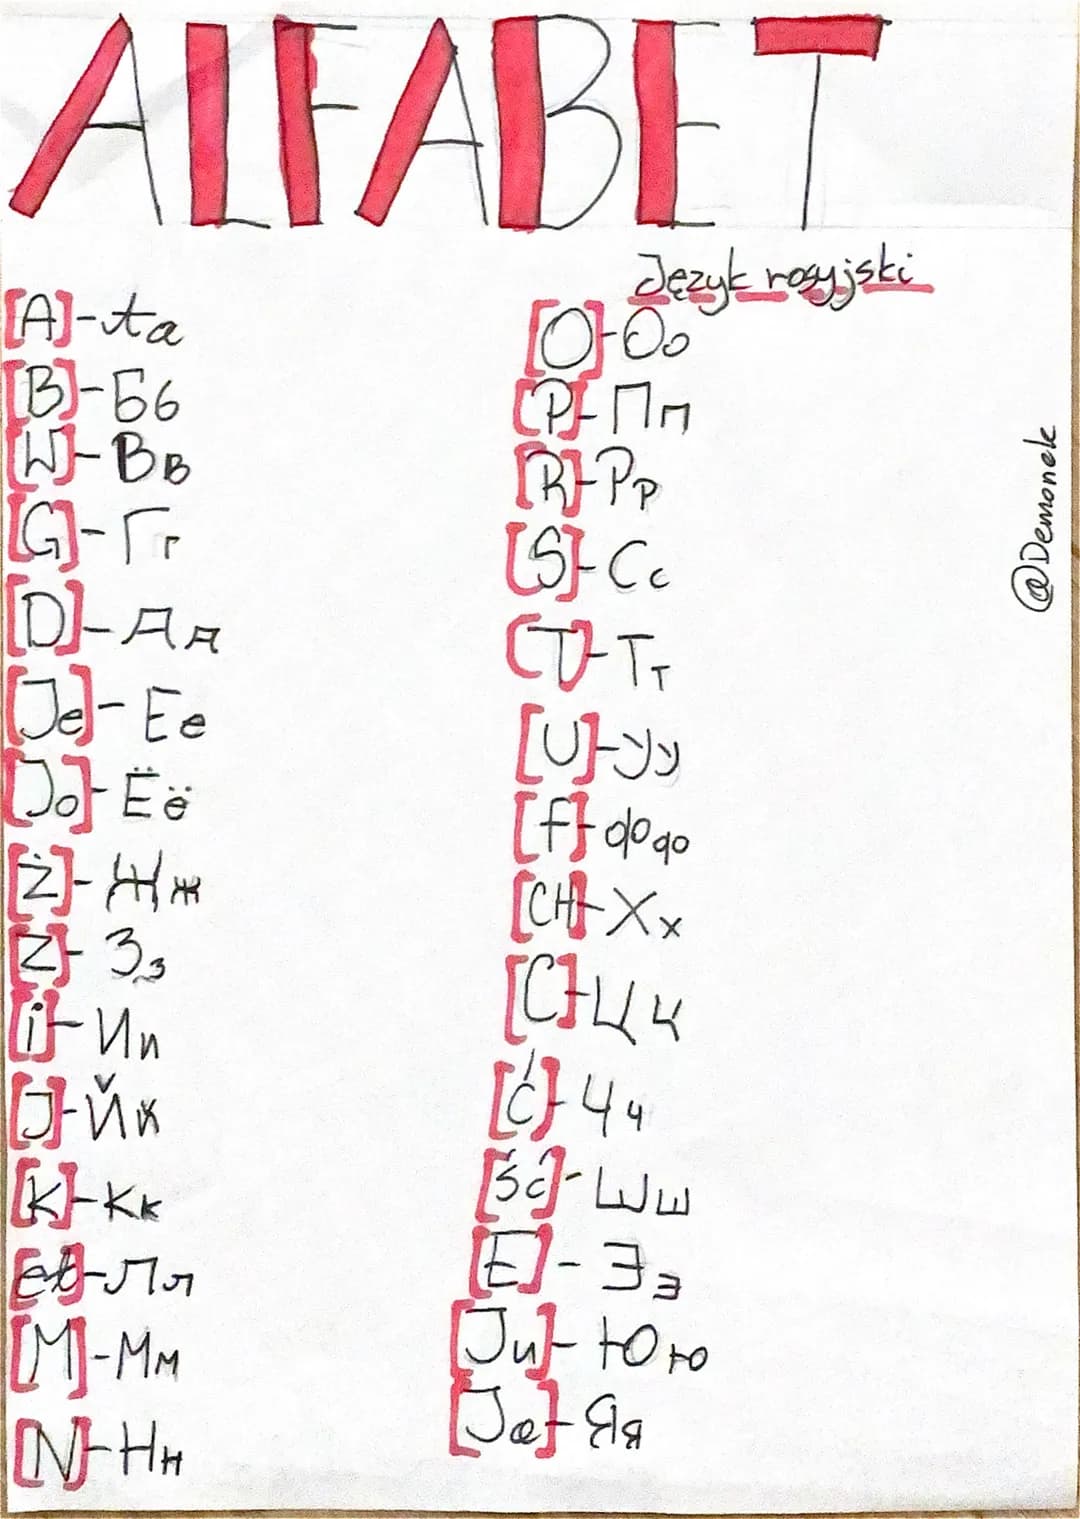 ALFABET
Język rosyjski
[A]-Aa
[B]-Бб
[W]-Вв
[G]-Гг
[D]-Дд
[Je]-Ее
[Jo]-Ёё
[Ż]-Жж
[Z]-Зз
[i]-Ии
[J]-Йй
[K]-Кк
-Лл
[M]-Мм
[N]-Нн
[O]-Оо
[P]-Пп
[R]-Рр
[S]-Сс
[T]-Тт
[U]-Уу
[f]-Фф
[CH]-Хх
[C]-Цц
[Ć]-Чч
[Ść]-Шш
[E]-Ээ
[Ju]-Юю
[Ja]-Яя
@Demonek